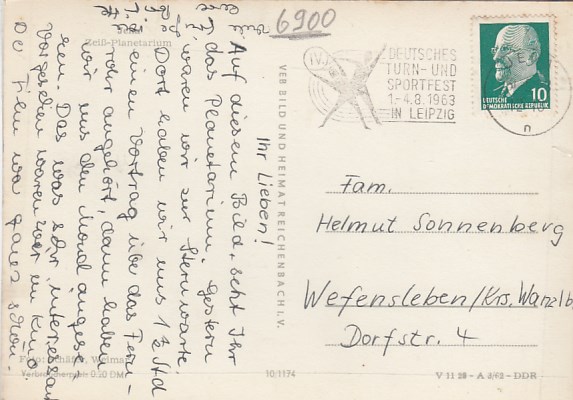 6900
Jena
Zeiß-Planetarium
Ihr Lieben!
Auf diesem Bild, seht Ihr
das Planetarium. Gestern
waren wir zur Sternwarte.
Dort haben wir uns 1½ Std
einen Vortrag über das Fern-
rohr angehört, dann haben
wir uns den Mond angese-
hen. Das war sehr interessant
Vorgestern waren wir im Kino.
Der Film war ganz schön.
Foto: Schäfer, Weimar
Verbraucherpreis 0,20 DM
VEB BILD UND HEIMAT REICHENBACH I. V.
10/1174
V 11 28 - A 3/62 - DDR
IV.
DEUTSCHES
TURN- UND
SPORTFEST
1.-4.8.1963
IN LEIPZIG
10
DEUTSCHE
DEMOKRATISCHE REPUBLIK
n
Fam.
Helmut Sonnenberg
Wefensleben/Krs. Wanzlb
Dorfstr. 4